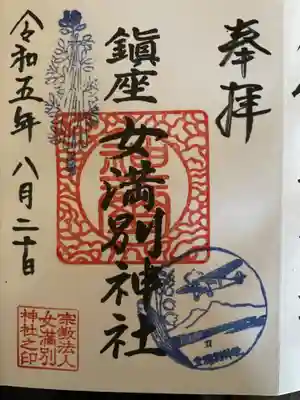 奉拝
鎭座
女満別神社
令和五年八月二十日
宗教法人
女満別
神社之印